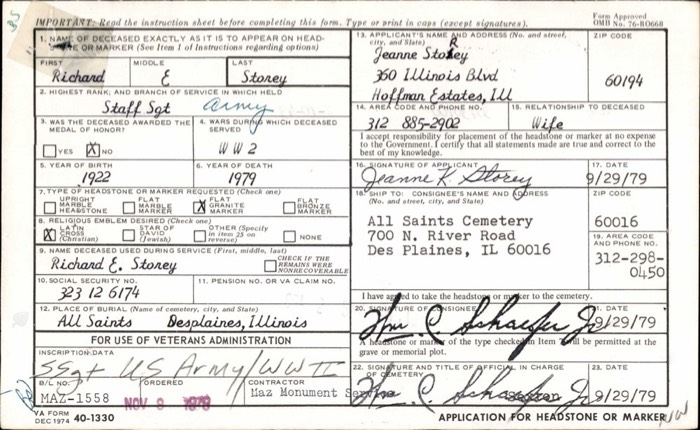 IMPORTANT: Read the instruction sheet before completing this form. Type or print in caps (except signatures).
Form Approved
OMB No. 76-RO668
1. NAME OF DECEASED EXACTLY AS IT IS TO APPEAR ON HEAD-
STONE OR MARKER (See Item 1 of Instructions regarding options)
FIRST MIDDLE LAST
Richard E Storey
2. HIGHEST RANK, AND BRANCH OF SERVICE IN WHICH HELD
Staff Sgt Army
3. WAS THE DECEASED AWARDED THE MEDAL OF HONOR?
YES X NO
4. WARS DURING WHICH DECEASED SERVED
WW2
5. YEAR OF BIRTH
1922
6. YEAR OF DEATH
1979
7. TYPE OF HEADSTONE OR MARKER REQUESTED (Check one)
UPRIGHT MARBLE HEADSTONE
FLAT MARBLE MARKER
X FLAT GRANITE MARKER
FLAT BRONZE MARKER
8. RELIGIOUS EMBLEM DESIRED (Check one)
X LATIN CROSS (Christian)
STAR OF DAVID (Jewish)
OTHER (Specify in item 25 on reverse)
NONE
9. NAME DECEASED USED DURING SERVICE (First, middle, last)
Richard E. Storey
CHECK IF THE REMAINS WERE NONRECOVERABLE
10. SOCIAL SECURITY NO.
323 12 6174
11. PENSION NO. OR VA CLAIM NO.
12. PLACE OF BURIAL (Name of cemetery, city, and state)
All Saints Desplaines, Illinois
FOR USE OF VETERANS ADMINISTRATION
INSCRIPTION DATA
SSgt US Army/WW II
B/L NO.
MAZ-1558
ORDERED
NOV 8 1979
CONTRACTOR
Maz Monument Service
VA FORM
DEC 1974 40-1330
13. APPLICANT'S NAME AND ADDRESS (No. and street, city, and State)
ZIP CODE
R
Jeanne Storey
360 Illinois Blvd
Hoffman Estates, Ill
60194
14. AREA CODE AND PHONE NO.
312 885-2902
15. RELATIONSHIP TO DECEASED
Wife
I accept responsibility for placement of the headstone or marker at no expense
to the Government. I certify that all statements made are true and correct to the
best of my knowledge.
16. SIGNATURE OF APPLICANT
Jeanne K. Storey
17. DATE
9/29/79
18. SHIP TO: CONSIGNEE'S NAME AND ADDRESS
(No. and street, city, and State)
ZIP CODE
60016
All Saints Cemetery
700 N. River Road
Des Plaines, IL 60016
19. AREA CODE AND PHONE NO.
312-298-
0450
I have agreed to take the headstone or marker to the cemetery.
20. SIGNATURE OF CONSIGNEE
Wm C Schaefer Jr
21. DATE
9/29/79
A headstone or marker of the type checked in Item 7 will be permitted at the
grave or memorial plot.
22. SIGNATURE AND TITLE OF OFFICIAL IN CHARGE OF CEMETERY
Wm C. Schaefer Jr
23. DATE
9/29/79
APPLICATION FOR HEADSTONE OR MARKER